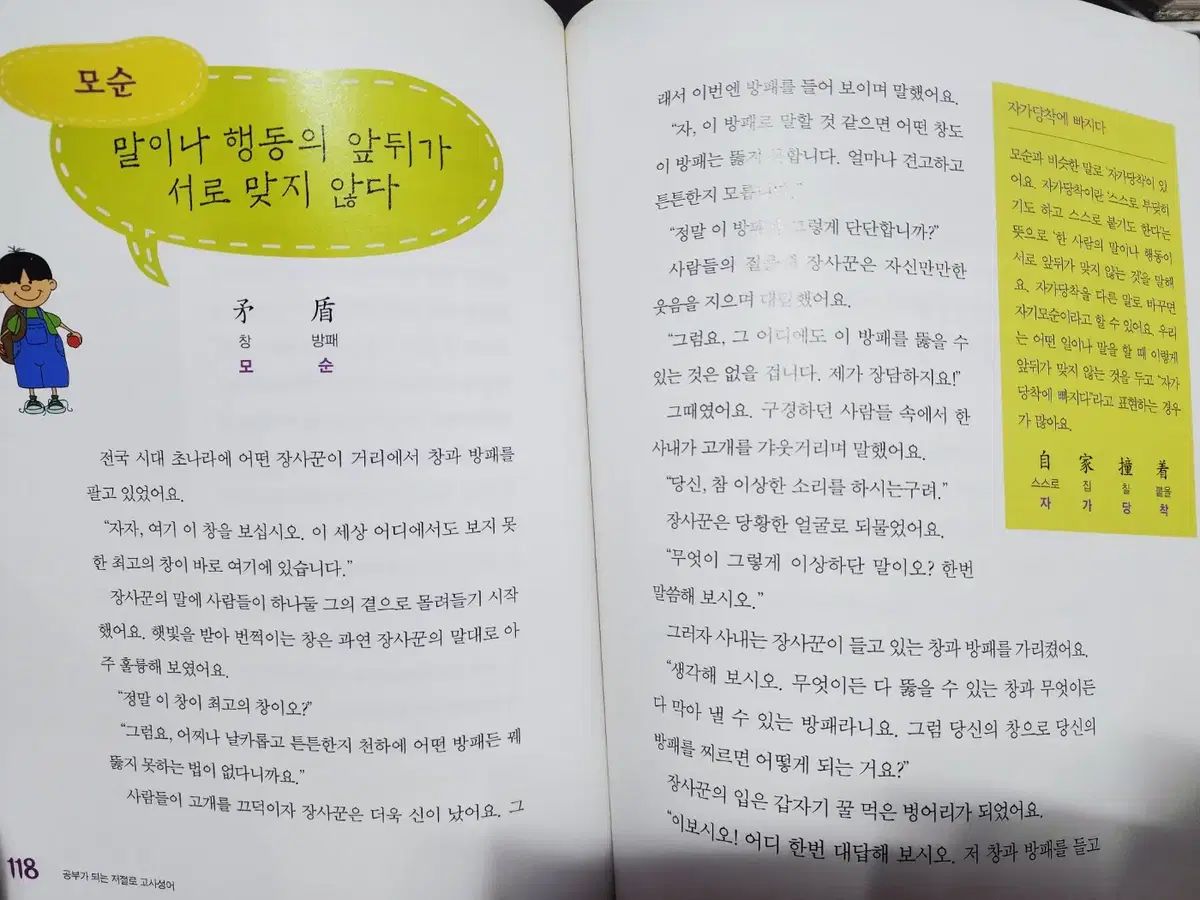 모순
말이나 행동의 앞뒤가
서로 맞지 않다
矛 盾
창 방패
모 순
전국 시대 초나라에 어떤 장사꾼이 거리에서 창과 방패를
팔고 있었어요.
“자자, 여기 이 창을 보십시오. 이 세상 어디에서도 보지 못
한 최고의 창이 바로 여기에 있습니다.”
장사꾼의 말에 사람들이 하나둘 그의 곁으로 몰려들기 시작
했어요. 햇빛을 받아 번쩍이는 창은 과연 장사꾼의 말대로 아
주 훌륭해 보였어요.
“정말 이 창이 최고의 창이오?”
“그럼요, 어찌나 날카롭고 튼튼한지 천하에 어떤 방패든 꿰
뚫지 못하는 법이 없다니까요.”
사람들이 고개를 끄덕이자 장사꾼은 더욱 신이 났어요. 그
118
공부가 되는 저절로 고사성어
래서 이번엔 방패를 들어 보이며 말했어요.
“자, 이 방패로 말할 것 같으면 어떤 창도
이 방패는 뚫지 못합니다. 얼마나 견고하고
튼튼한지
“정말 이 그렇게 단단합니까?”
사람들의 장사꾼은 자신만만한
웃음을 지으며 대답했어요.
“그럼요, 그 어디에도 이 방패를 뚫을 수
있는 것은 없을 겁니다. 제가 장담하지요!”
그때였어요. 구경하던 사람들 속에서 한
사내가 고개를 갸웃거리며 말했어요.
“당신, 참 이상한 소리를 하시는구려.”
장사꾼은 당황한 얼굴로 되물었어요.
“무엇이 그렇게 이상하단 말이오? 한번
말씀해 보시오.”
그러자 사내는 장사꾼이 들고 있는 창과 방패를 가리켰어요.
“생각해 보시오. 무엇이든 다 뚫을 수 있는 창과 무엇이든
다 막아 낼 수 있는 방패라니요. 그럼 당신의 창으로 당신의
방패를 찌르면 어떻게 되는 거요?”
장사꾼의 입은 갑자기 꿀 먹은 벙어리가 되었어요.
“이보시오! 어디 한번 대답해 보시오. 저 창과 방패를 들고
자가당착에 빠지다
모순과 비슷한 말로 ‘자가당착’이 있
어요. 자가당착이란 ‘스스로 부딪히
기도 하고 스스로 붙기도 한다’는
뜻으로 ‘한 사람의 말이나 행동이
서로 앞뒤가 맞지 않는 것’을 말해
요. 자가당착을 다른 말로 바꾸면
자기모순이라고 할 수 있어요. 우리
는 어떤 일이나 말을 할 때 이렇게
앞뒤가 맞지 않는 것을 두고 “자가
당착에 빠지다”라고 표현하는 경우
가 많아요.
自 家 撞 着
스스로 집 칠 붙을
자 가 당 착